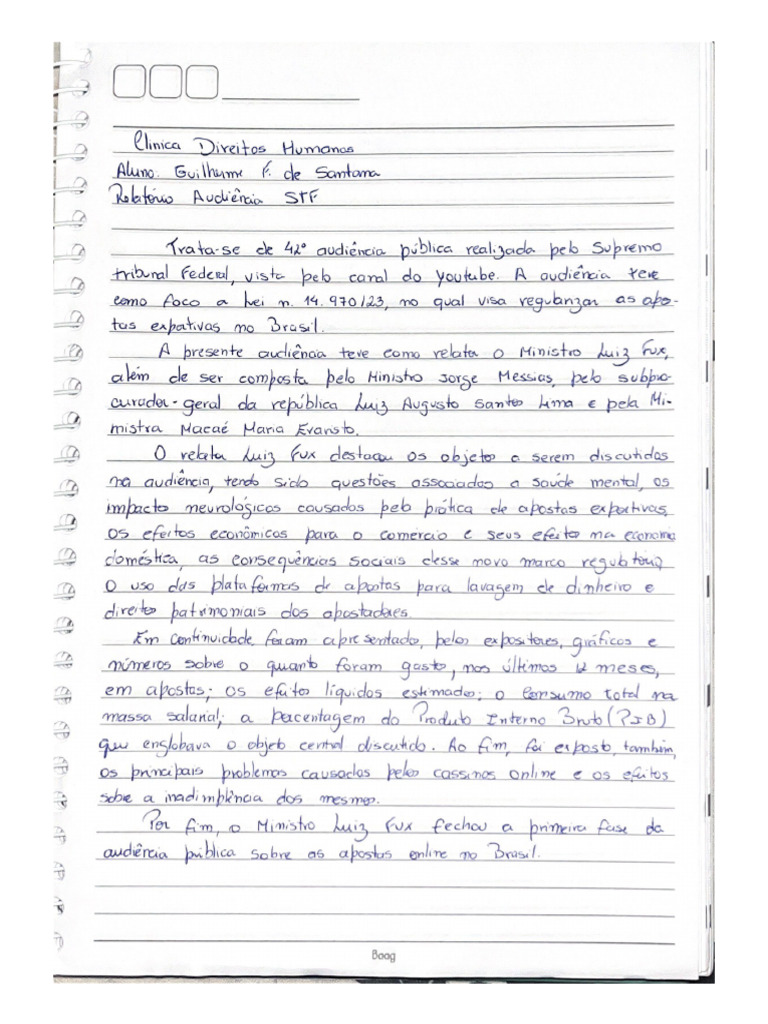 Clinica Direitos Humanos
Aluno: Guilherme F. de Santana
Relatório Audiência STF
Trata-se de 42º audiência pública realizada pelo Supremo
tribunal Federal, vista pelo canal do youtube. A audiência teve
como foco a Lei n. 14.970/23, no qual visa regulanzar as apos-
tas expotivas no Brasil.
A presente audiência teve como relata o Ministro Luiz Fux,
além de ser composta pelo Ministro Jorge Messias, pelo subpro-
curador-geral da república Luiz Augusto Santos Lima e pela Mi-
nistra Macaé Maria Evaristo.
O relata Luiz Fux destacou os objetos a serem discutidos
na audiência, tendo sido questões associadas a saúde mental, os
impacto neurológicos causados pelo prática de apostas expotivas,
os efeitos econômicos para o comércio e seus efeitos na economia
doméstica, as consequências sociais desse novo marco regulatório,
O uso das plataformas de apostas para lavagem de dinheiro e
direitos patrimoniais dos apostadores.
Em continuidade, foram apresentado, pelos expositores, gráficos e
números sobre o quanto foram gasto, nos últimos 12 meses,
em apostas; os efeitos líquidos estimados; o consumo total na
massa salarial; a pacentagem do Produto Interno Bruto (PIB)
que englobava o objeto central discutido. Ao fim, foi exposto, também,
os principais problemas causados pelos cassinos online e os efeitos
sobre a inadimplência dos mesmos.
Por fim, o Ministro Luiz Fux fechou a primeira fase da
audiência pública sobre as apostas online no Brasil.
Boog